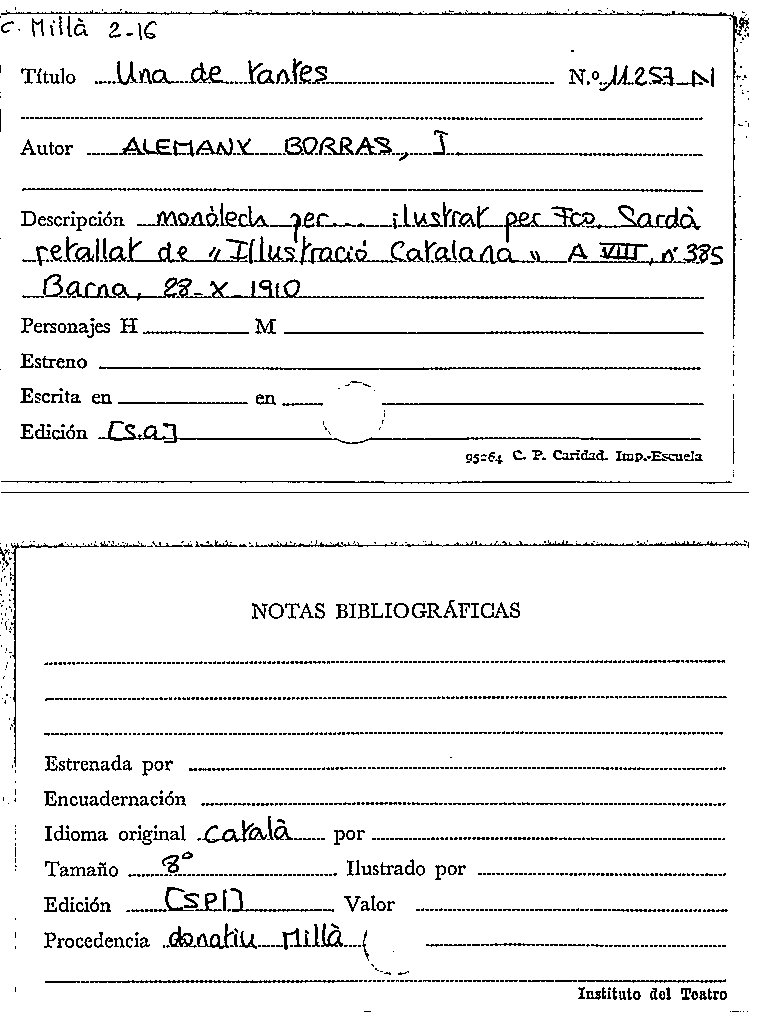 C. Millà 2-16
Título Una de tantes N.º 11257-N
Autor ALEMANY BORRAS, I
Descripción monòlech per... ilustrat per Fco. Sardà
retallat de "Il·lustració Catalana" A VIII, nº 385
Barna, 23-X-1910
Personajes H M
Estreno
Escrita en en
Edición [S.a.]
95264 C. P. Caridad. Imp.-Escuela
NOTAS BIBLIOGRÁFICAS
Estrenada por
Encuadernación
Idioma original català por
Tamaño 8º Ilustrado por
Edición [SPI] Valor
Procedencia donatiu Millà
Instituto del Teatro